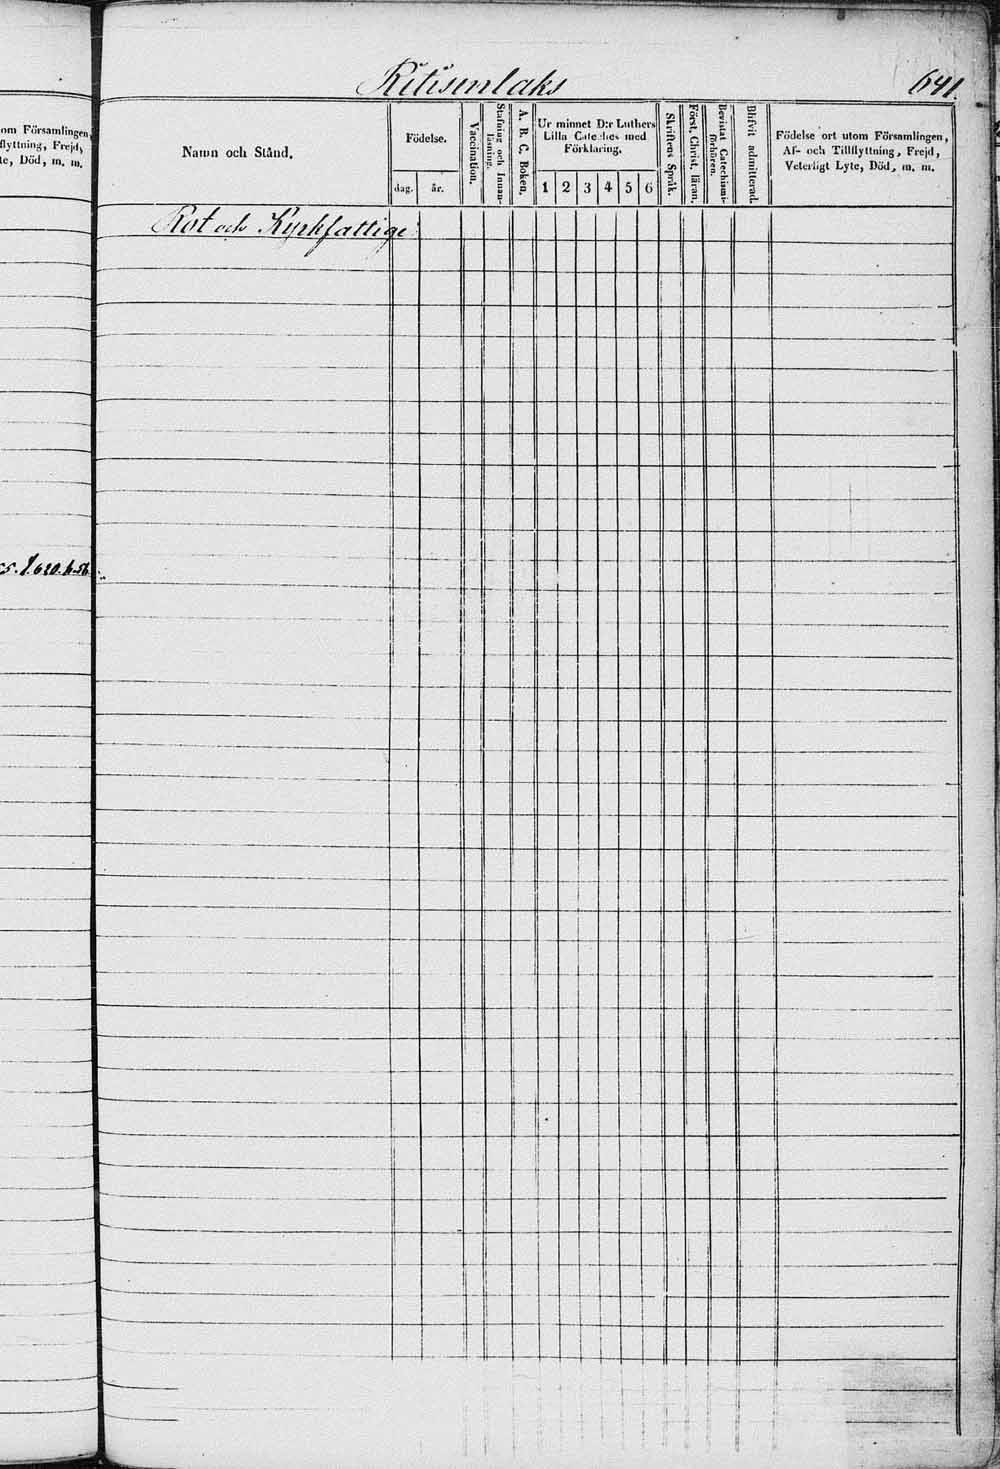 Kitisenlaks
641.
om Församlingen,
flyttning, Frejd,
te, Död, m. m.
Namn och Stånd.
Födelse.
dag. år.
Vaccination.
Stafning och Innan-
läsning.
A. B. C. Boken.
Ur minnet D:r Luthers
Lilla Cateches med
Förklaring.
1 2 3 4 5 6
Skriftens Språk.
Först. Christ. läran.
Bevistat Catechismi-
förhören.
Blifvit admitterad.
Födelse ort utom Församlingen,
Af- och Tillflyttning, Frejd,
Veterligt Lyte, Död, m. m.
Rot och Kyrkfattige